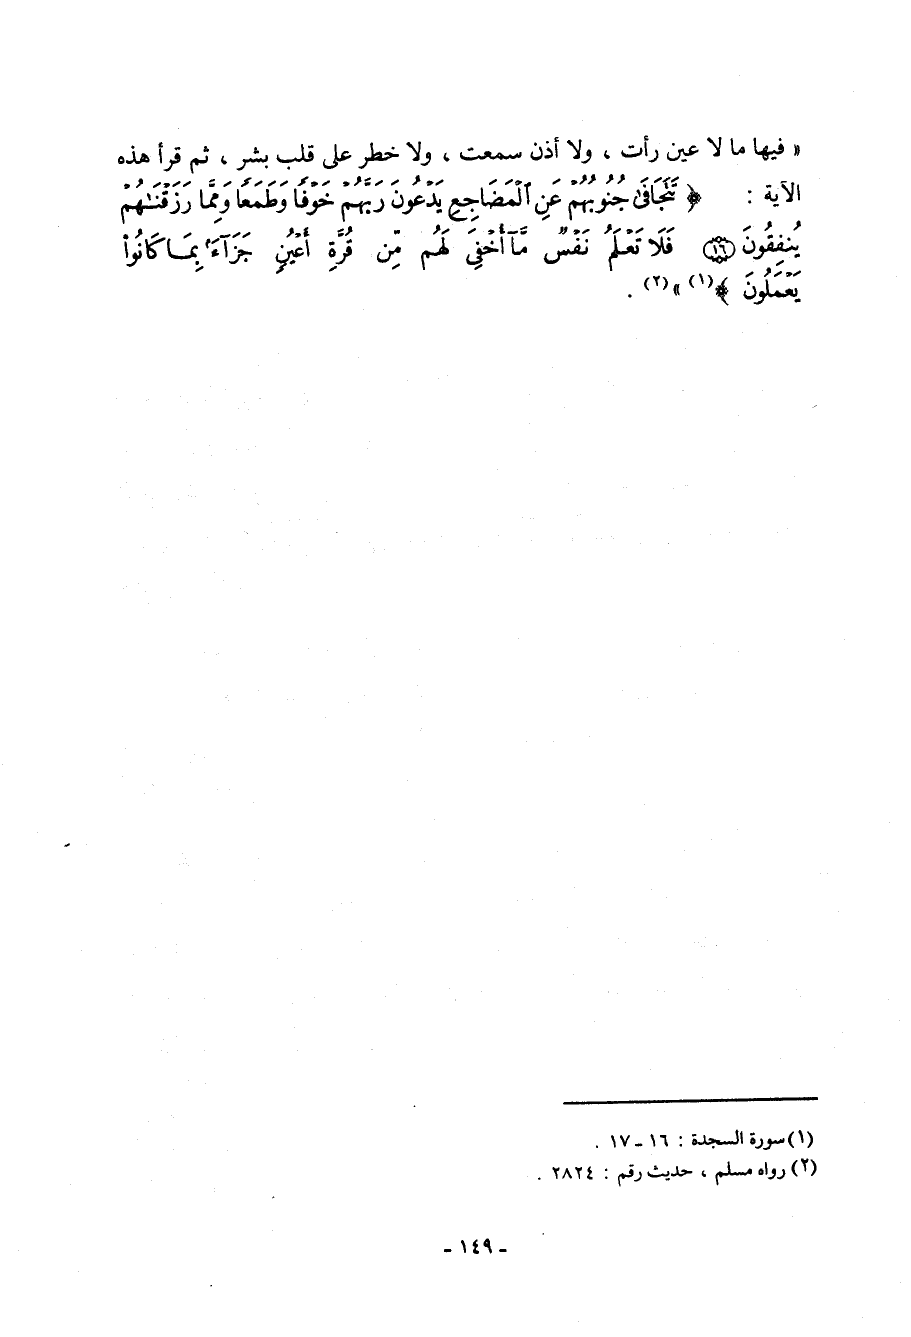 « فيها ما لا عين رأت ، ولا أذن سمعت ، ولا خطر على قلب بشر ، ثم قرأ هذه
الآية : ﴿ تَتَجَافَىٰ جُنُوبُهُمْ عَنِ ٱلْمَضَاجِعِ يَدْعُونَ رَبَّهُمْ خَوْفًا وَطَمَعًا وَمِمَّا رَزَقْنَـٰهُمْ
يُنفِقُونَ ۝١٦ فَلَا تَعْلَمُ نَفْسٌ مَّآ أُخْفِىَ لَهُم مِّن قُرَّةِ أَعْيُنٍ جَزَآءًۢ بِمَا كَانُوا۟
يَعْمَلُونَ ﴾(١) »(٢) .
(١) سورة السجدة : ١٦ ـ ١٧ .
(٢) رواه مسلم ، حديث رقم : ٢٨٢٤ .
ـ ١٤٩ ـ